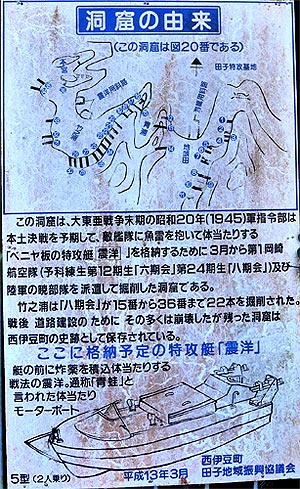 洞窟の由来
(この洞窟は図20番である)
田子特攻基地
震洋用料廠
この洞窟は、大東亜戦争末期の昭和20年(1945)軍指令部は
本土決戦を予期して、敵艦隊に魚雷を抱いて体当たりする
「ベニヤ板の特攻艇「震洋」を格納するために3月から第1岡崎
航空隊(予科練生第12期生「六期会」第24期生「八期会」)及び
陸軍の暁部隊を派遣して掘削した洞窟である。
竹之浦は「八期会」が15番から36番まで22本を掘削された。
戦後 道路建設の ために その多くは崩壊したが残った洞窟は
西伊豆町の史跡として保存されている。
ここに格納予定の特攻艇「震洋」
艇の前に炸薬を積込体当たりする
戦法の震洋。通称「青蛙」と
言われた体当たり
モーターボート
5型(2人乗り)
平成13年3月
西伊豆町
田子地域振興協議会